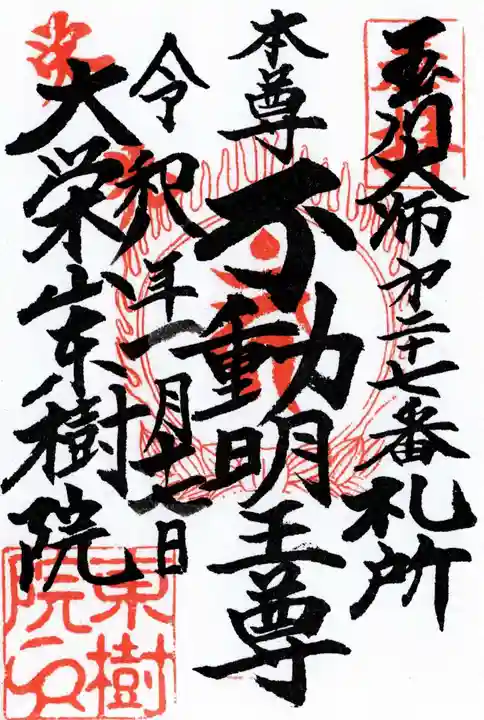 玉川大師第二十七番札所
本尊
不動明王尊
令和年一月十七日
大栄山東樹院
東樹
院印